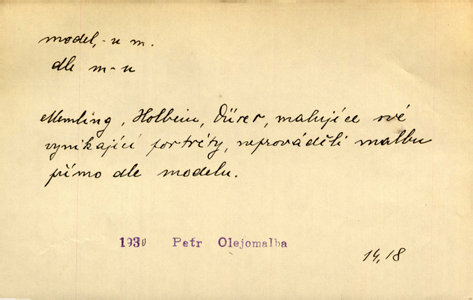 model, -u m.
dle m-u
Memling, Holbein, Dürer, malujíce své
vynikající portréty, neprováděli malbu
přímo dle modelu.
1930 Petr Olejomalba
14,18